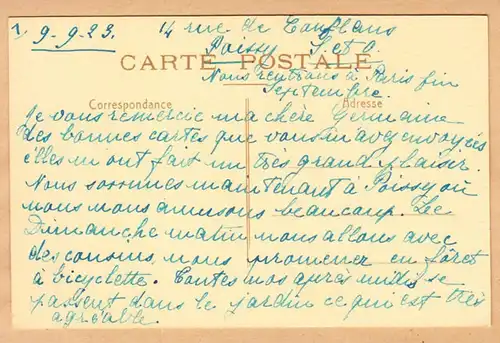 9-9-23. 14 rue de Conflans
Poissy S. et O.
CARTE POSTALE
Nous rentrons à Paris fin
Septembre.
Correspondance Adresse
Je vous remercie ma chère Germaine
des bonnes cartes que vous m'avez envoyées
elles m'ont fait un très grand plaisir.
Nous sommes maintenant à Poissy où
nous nous amusons beaucoup. Le
Dimanche matin nous allons avec
des cousins, nous promener en forêt
à bicyclette. Toutes nos après midis se
passent dans le jardin ce qui est très
agréable.